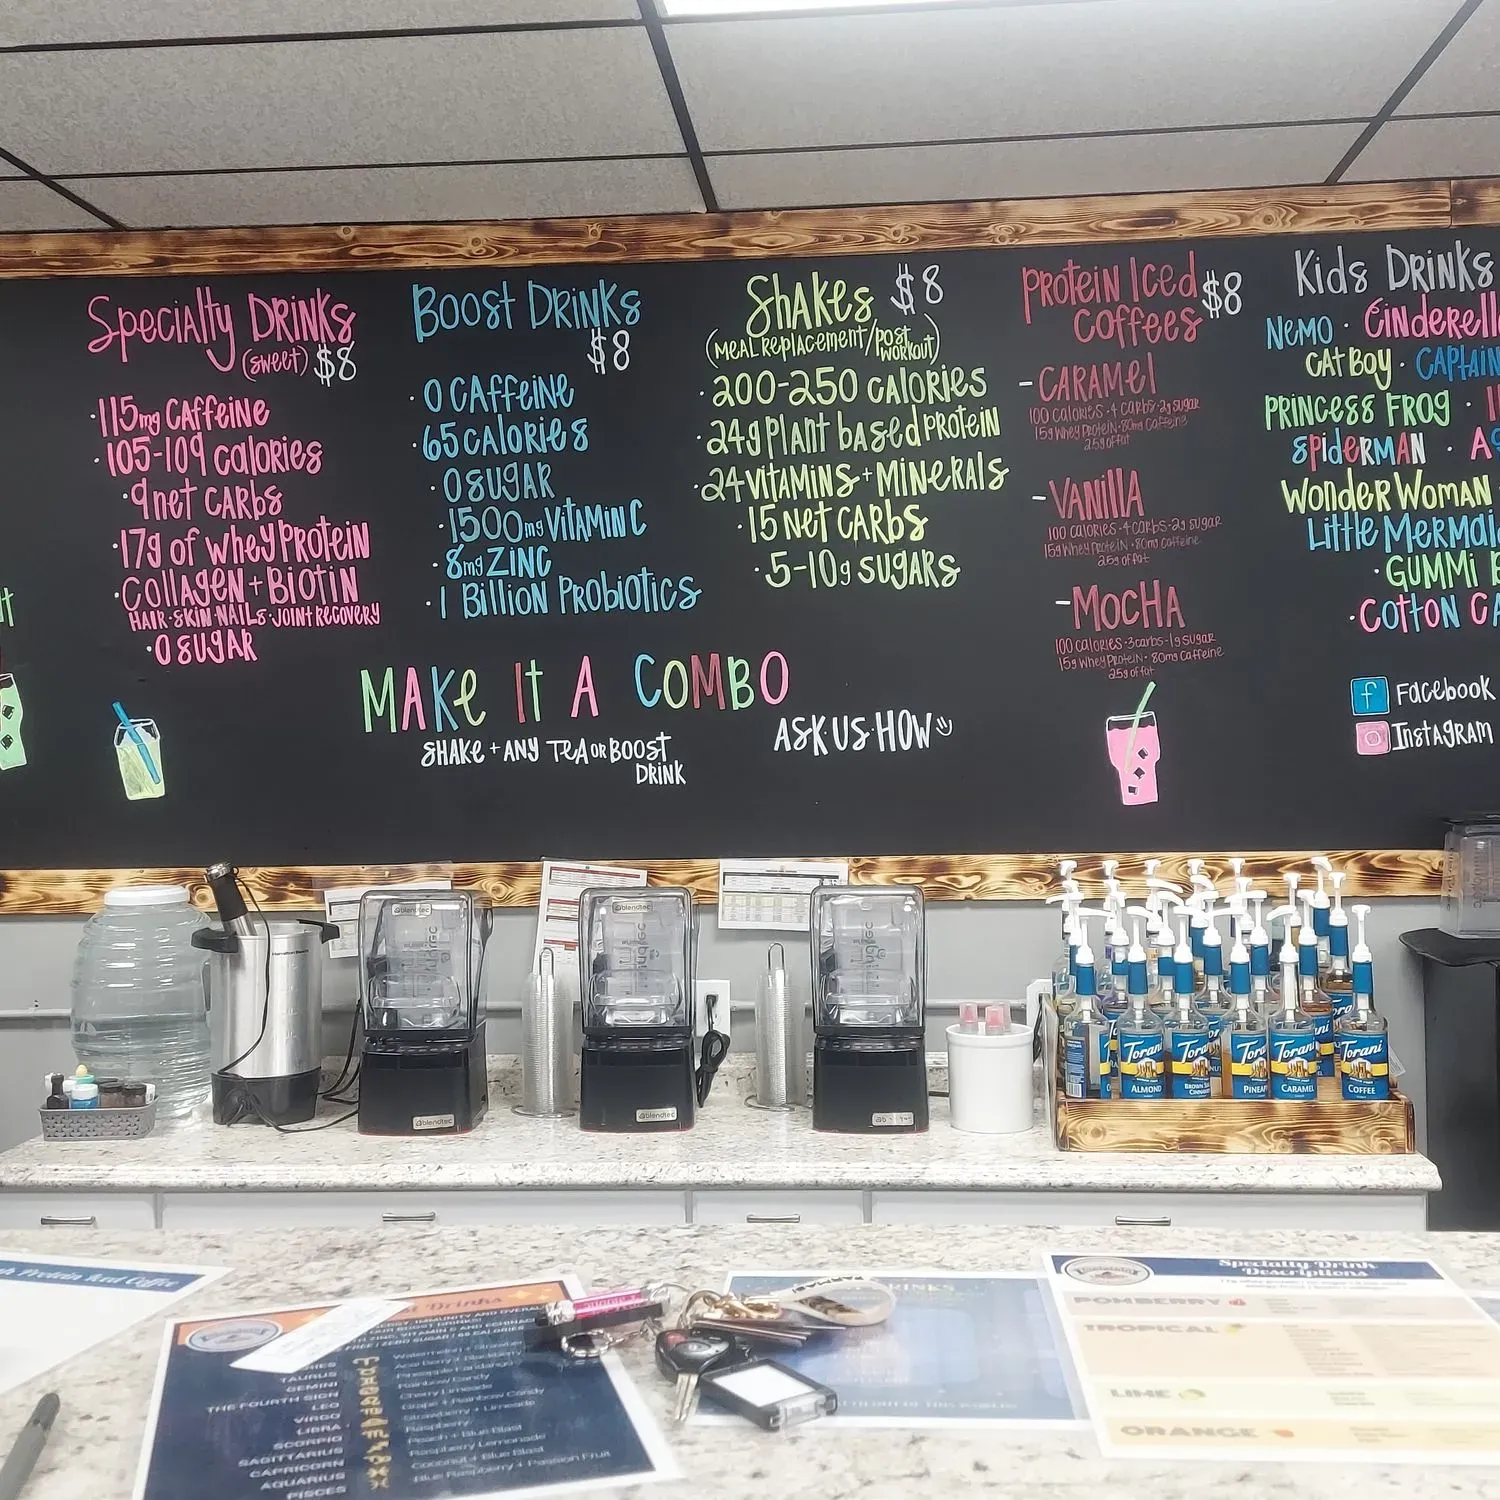 Specialty Drinks
(sweet) $8
·115mg caffeine
·105-109 calories
·9 net carbs
·17g of whey protein
·Collagen + Biotin
Hair·Skin·Nails·Joint Recovery
·0 sugar
Boost Drinks
$8
·0 caffeine
·65 calories
·0 sugar
·1500mg Vitamin C
·8mg Zinc
·1 Billion Probiotics
Shakes $8
(Meal Replacement/Post Workout)
·200-250 calories
·24g plant based protein
·24 vitamins + minerals
·15 net carbs
·5-10g sugars
Protein Iced $8
Coffees
-Caramel
100 calories·4 carbs·2g sugar
15g whey protein·80mg caffeine
2.5g of fat
-Vanilla
100 calories·4 carbs·2g sugar
15g whey protein·80mg caffeine
2.5g of fat
-Mocha
100 calories·3 carbs·1g sugar
15g whey protein·80mg caffeine
2.5g of fat
Kids Drinks
Nemo · Cinderell
Cat Boy · Captain
Princess Frog ·
Spiderman ·
Wonder Woman
Little Mermai
·Gummi
·Cotton
Make it a Combo
Shake + any Tea or Boost
Drink
Ask·us·how
f Facebook
Instagram
blendtec
blendtec
blendtec
blendtec
Torani
Almond
Torani
Brown Sugar
Cinnamon
Torani
Torani
Caramel
Torani
Coffee
Protein Iced Coffee
Drinks
Taurus
Gemini
The Fourth Sign
Leo
Virgo
Libra
Scorpio
Sagittarius
Capricorn
Aquarius
Pisces
Acai Berry + Blackberry
Pineapple Fandango
Rainbow Candy
Cherry Limeade
Grape + Rainbow Candy
Strawberry + Limeade
Raspberry
Peach + Blue Blast
Raspberry Lemonade
Coconut + Blue Blast
Blue Raspberry + Passion Fruit
Specialty Drink
Descriptions
Pomberry
Tropical
Lime
Orange